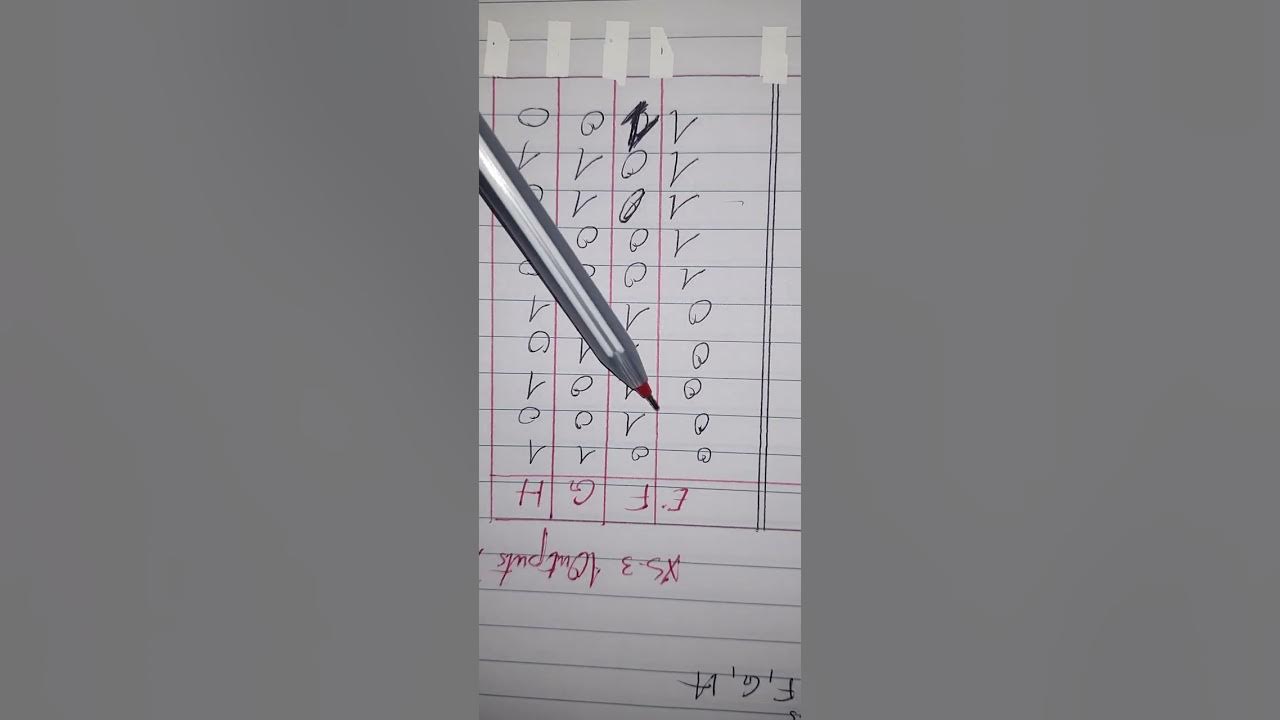 F, G, H
XS-3 Outputs,
E F G H
0 0 1 1
0 1 0 0
0 1 0 1
0 1 0
0 1 1
1 0 0 0
1 0 0
1 0 1 0
1 0 1 1
1 1 0 0